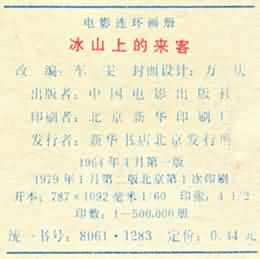 电影连环画册
冰山上的来客
改编：车 封面设计：方庆
出版者：中国电影出版社
印刷者：北京新华印刷厂
发行者：新华书店北京发行所
1964年4月第一版
1979年1月第二版北京第1次印刷
开本：787×1092毫米1/60 印张：4 1/2
印数：1—500,000册
统一书号：8061·1283 定价：0.44元